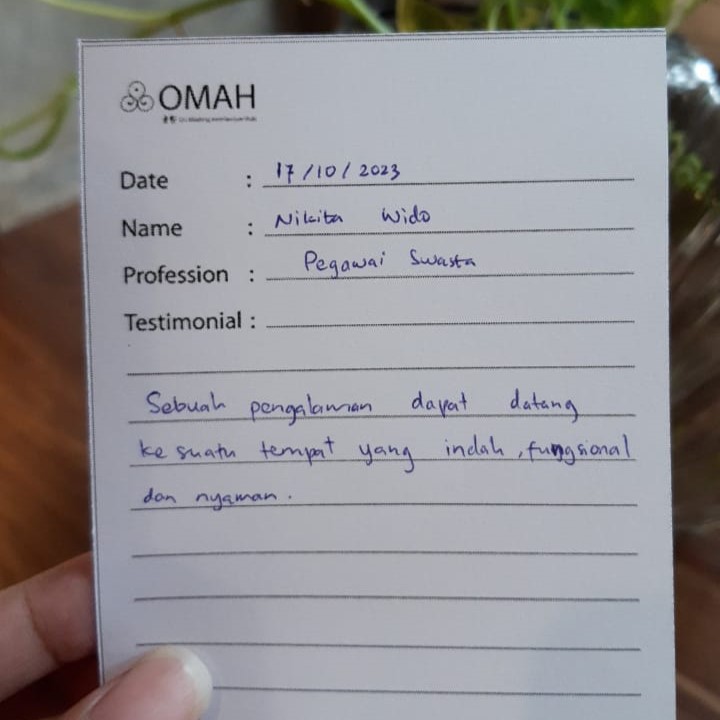 OMAH
Date : 17/10/2023
Name : Nikita Wido
Profession : Pegawai Swasta
Testimonial :
Sebuah pengalaman dapat datang
ke suatu tempat yang indah, fungsional
dan nyaman.